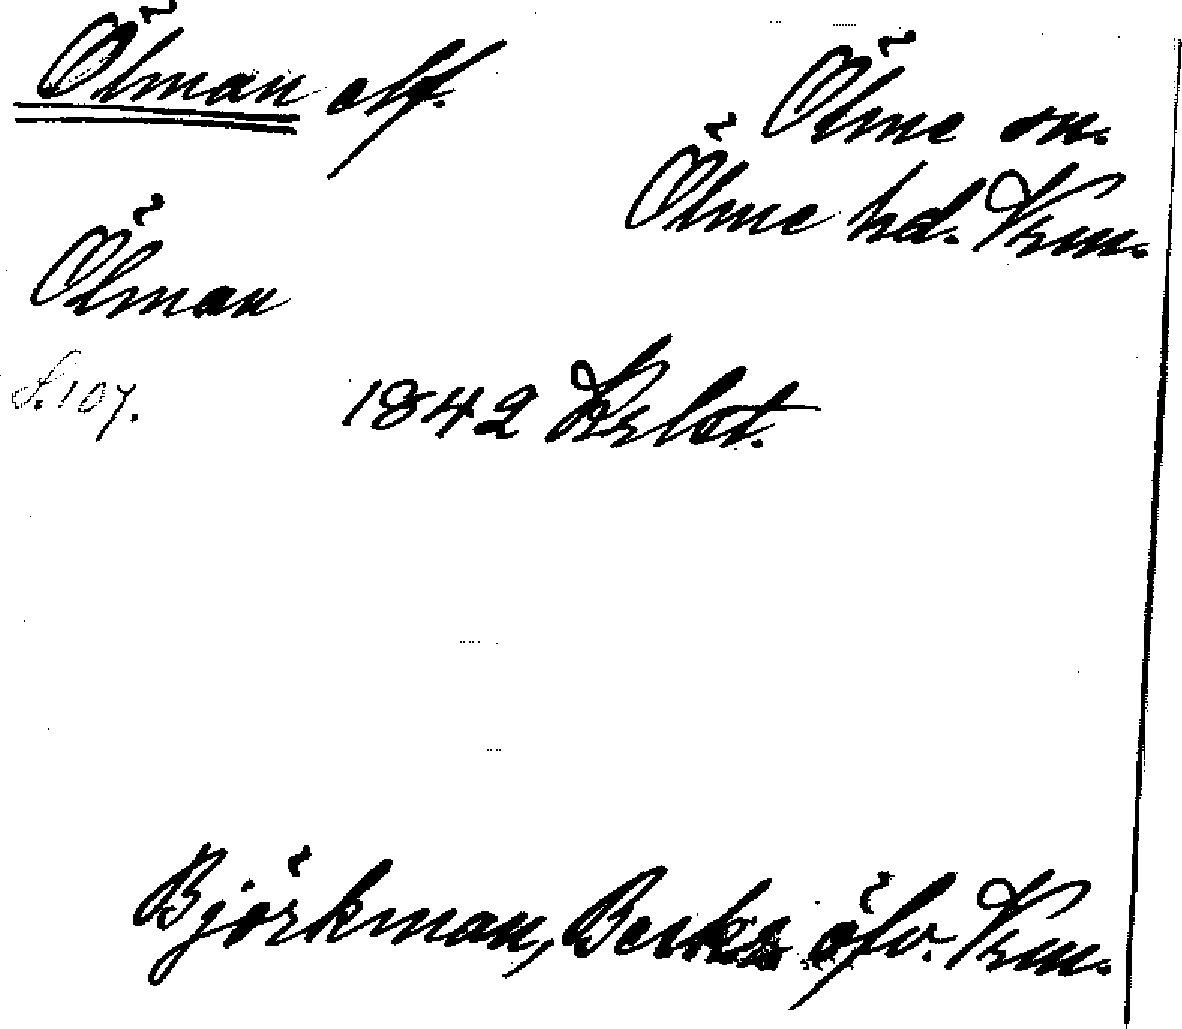 Ölman elf.
Ölme sn.
Ölme hd. Vrm.
Ölman
S. 107.
1842
Björkman, Beskr. öfv. Vrm.